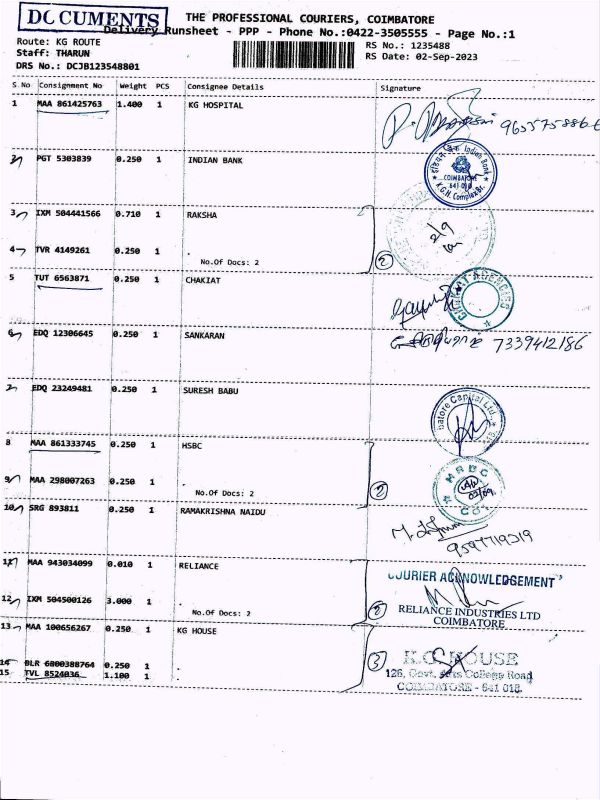 DOCUMENTS
THE PROFESSIONAL COURIERS, COIMBATORE
Delivery Runsheet - PPP - Phone No.:0422-3505555 - Page No.:1
Route: KG ROUTE
Staff: THARUN
DRS No.: DCJB123548801
RS No.: 1235488
RS Date: 02-Sep-2023
S No Consignment No Weight PCS Consignee Details Signature
1 MAA 861425763 1.400 1 KG HOSPITAL
2 PGT 5303839 0.250 1 INDIAN BANK
Indian Bank
COIMBATORE
641 018
K.G.H. Complex Br.
3 IXM 504441566 0.710 1 RAKSHA
2/9
4 TVR 4149261 0.250 1 .
No.Of Docs: 2 2
5 TUT 6563871 0.250 1 CHAKIAT
6 EDQ 12306645 0.250 1 SANKARAN 7339412186
7 EDQ 23249481 0.250 1 SURESH BABU
Capital Ltd.,
8 MAA 861333745 0.250 1 HSBC
9 MAA 298007263 0.250 1 .
No.Of Docs: 2 2
10 SRG 893811 0.250 1 RAMAKRISHNA NAIDU
11 MAA 943034099 0.010 1 RELIANCE
COURIER ACKNOWLEDGEMENT
12 IXM 504500126 3.000 1 .
No.Of Docs: 2 2
RELIANCE INDUSTRIES LTD
COIMBATORE
13 MAA 100656267 0.250 1 KG HOUSE
3
K.G. HOUSE
14 BLR 6800388764 0.250 1 .
15 TVL 8524036 1.100 1 .
126, Govt. Arts College Road
COIMBATORE - 641 018.